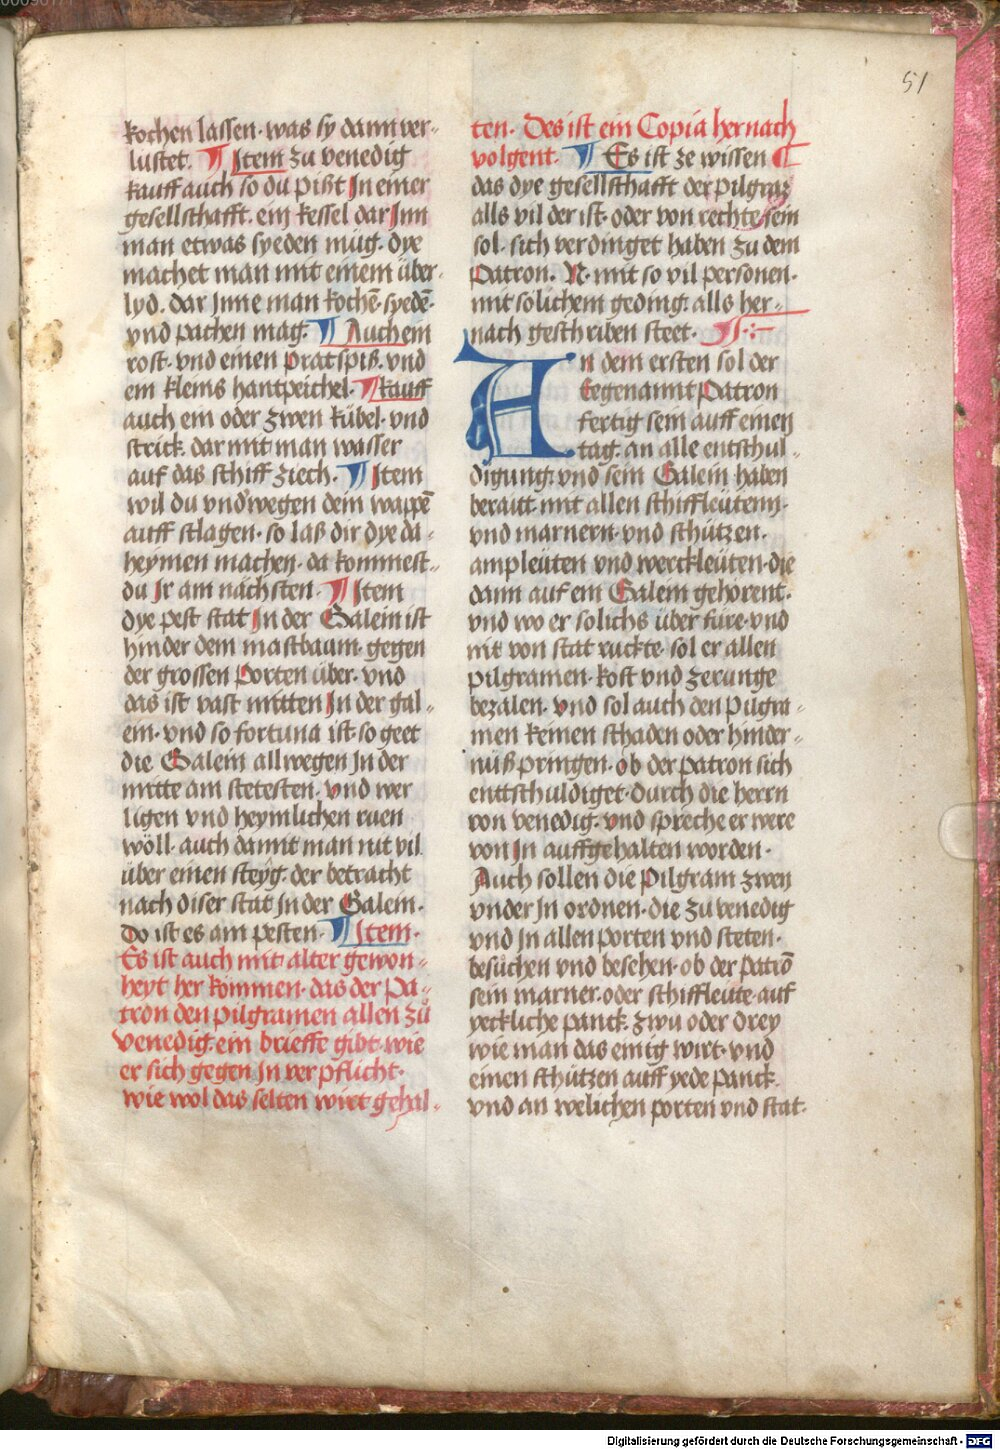 51
kochen lassen · was sy dann ver-
lustet. ¶ Item zu venedig
kauff auch so du pißt In einer
gesellschafft. ein kessel dar Inn
man etwas syeden müg. dye
machet man mit einem über-
lyd. dar Inne man kochē. syedē.
vnd pachen mag. ¶ Auch ein
rost. vnd einen pratspiß. vnd
ein kleins hantpeichel. ¶ kauff
auch ein oder zwen kübel. vnd
strick. dar mit man wasser
auf das schiff ziech. ¶ Item
wil du vnderwegen dein wappē
auff schlagen. so laß dir dye da-
heymen machen. da kommest-
du Ir am nächsten. ¶ Item
dye pest stat In der Galein ist
hinder dem mastbaum. gegen
der grossen Porten über. vnd
das ist vast mitten In der gal-
ein. vnd so fortuna ist. so geet
die Galein allwegen In der
mitte am stetesten. vnd wer
ligen vnd heymlichen ruen
wöll. auch damit man nit vil
über einen steyg. der betracht
nach diser stat In der Galein.
Do ist es am pesten. ¶ Item.
Es ist auch mit alter gewon-
heyt her kommen. das der Pa-
tron den pilgramen allen zů
Venedig. ein brieffe gibt. wie
er sich gegen In verpflicht.
wie wol das selten wirt gehal-
ten. Des ist ein Copia hernach
volgent. ¶ Es ist ze wissen
das dye gesellschafft der pilgram
alls vil der ist. oder von rechte sein
sol. sich verdinget haben zu dem
Patron. N. mit so vil personen.
mit solichem geding. alls her-
nach geschriben steet.
An dem ersten sol der
gegenannt Patron
fertig sein auff einen
tag. an alle entschul-
digung. vnd sein Galein haben
beraitt. mit allen schiffleüten.
vnd marnern. vnd schützen.
ampleüten vnd werckleüten. die
dann auf ein Galein gehorent.
vnd wo er solichs über füre. vnd
nit von stat ruckte. sol er allen
pilgramen. kost vnd zerunge
bezalen. vnd sol auch den pilgra-
men keinen schaden oder hinder-
nüß pringen. ob der patron sich
enttschuldiget. durch die herrn
von venedig. vnd spreche er were
von In auffgehalten worden.
Auch sollen die Pilgram zwen
vnder In ordnen. die zu venedig
vnd In allen porten vnd steten.
besüchen vnd besehen. ob der patrō
sein marner. oder schiffleute. auf
yeckliche panck. zwu oder drey
wie man das einig wirt. vnd
einen schützen auff yede panck.
vnd an welichen porten vnd stat.
Digitalisierung gefördert durch die Deutsche Forschungsgemeinschaft - DFG